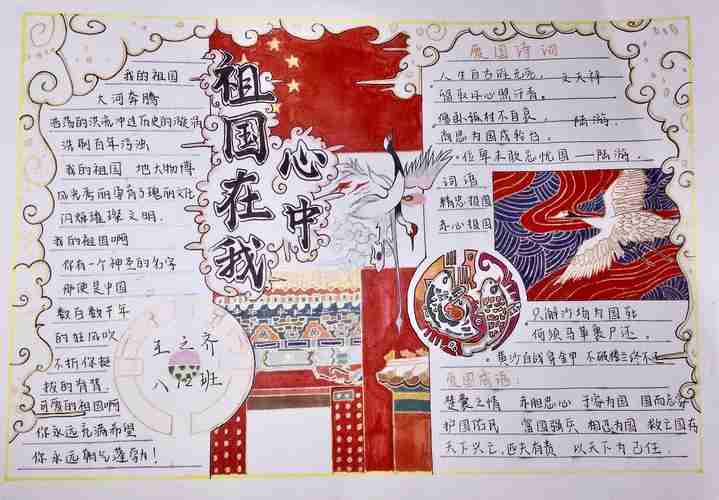 祖国在我
心中
我的祖国
大河奔腾
浩荡的洪流冲过历史的漩涡
洗刷百年污浊
我的祖国 地大物博
风光秀丽孕育了瑰丽文化
闪烁璀璨文明.
我的祖国啊
你有一个神圣的名字
那便是中国
数百数千年
的狂风吹
不折你挺
拔的脊背
可爱的祖国啊
你永远充满希望
你永远朝气蓬勃!
王之齐
八12班
爱国诗词
人生自古谁无死,
文天祥
留取丹心照汗青。
僵卧孤村不自哀,
陆游.
尚思为国戍轮台.
位卑未敢忘忧国—陆游.
词语
精忠祖国
赤心祖国
只解沙场为国死
何须马革裹尸还.
黄沙百战穿金甲 不破楼兰终不还
爱国成语:
楚囊之情 赤胆忠心 于家为国 国而忘家
护国佑民 富国强兵 相忍为国 救亡图存
天下兴亡,匹夫有责 以天下为己任.